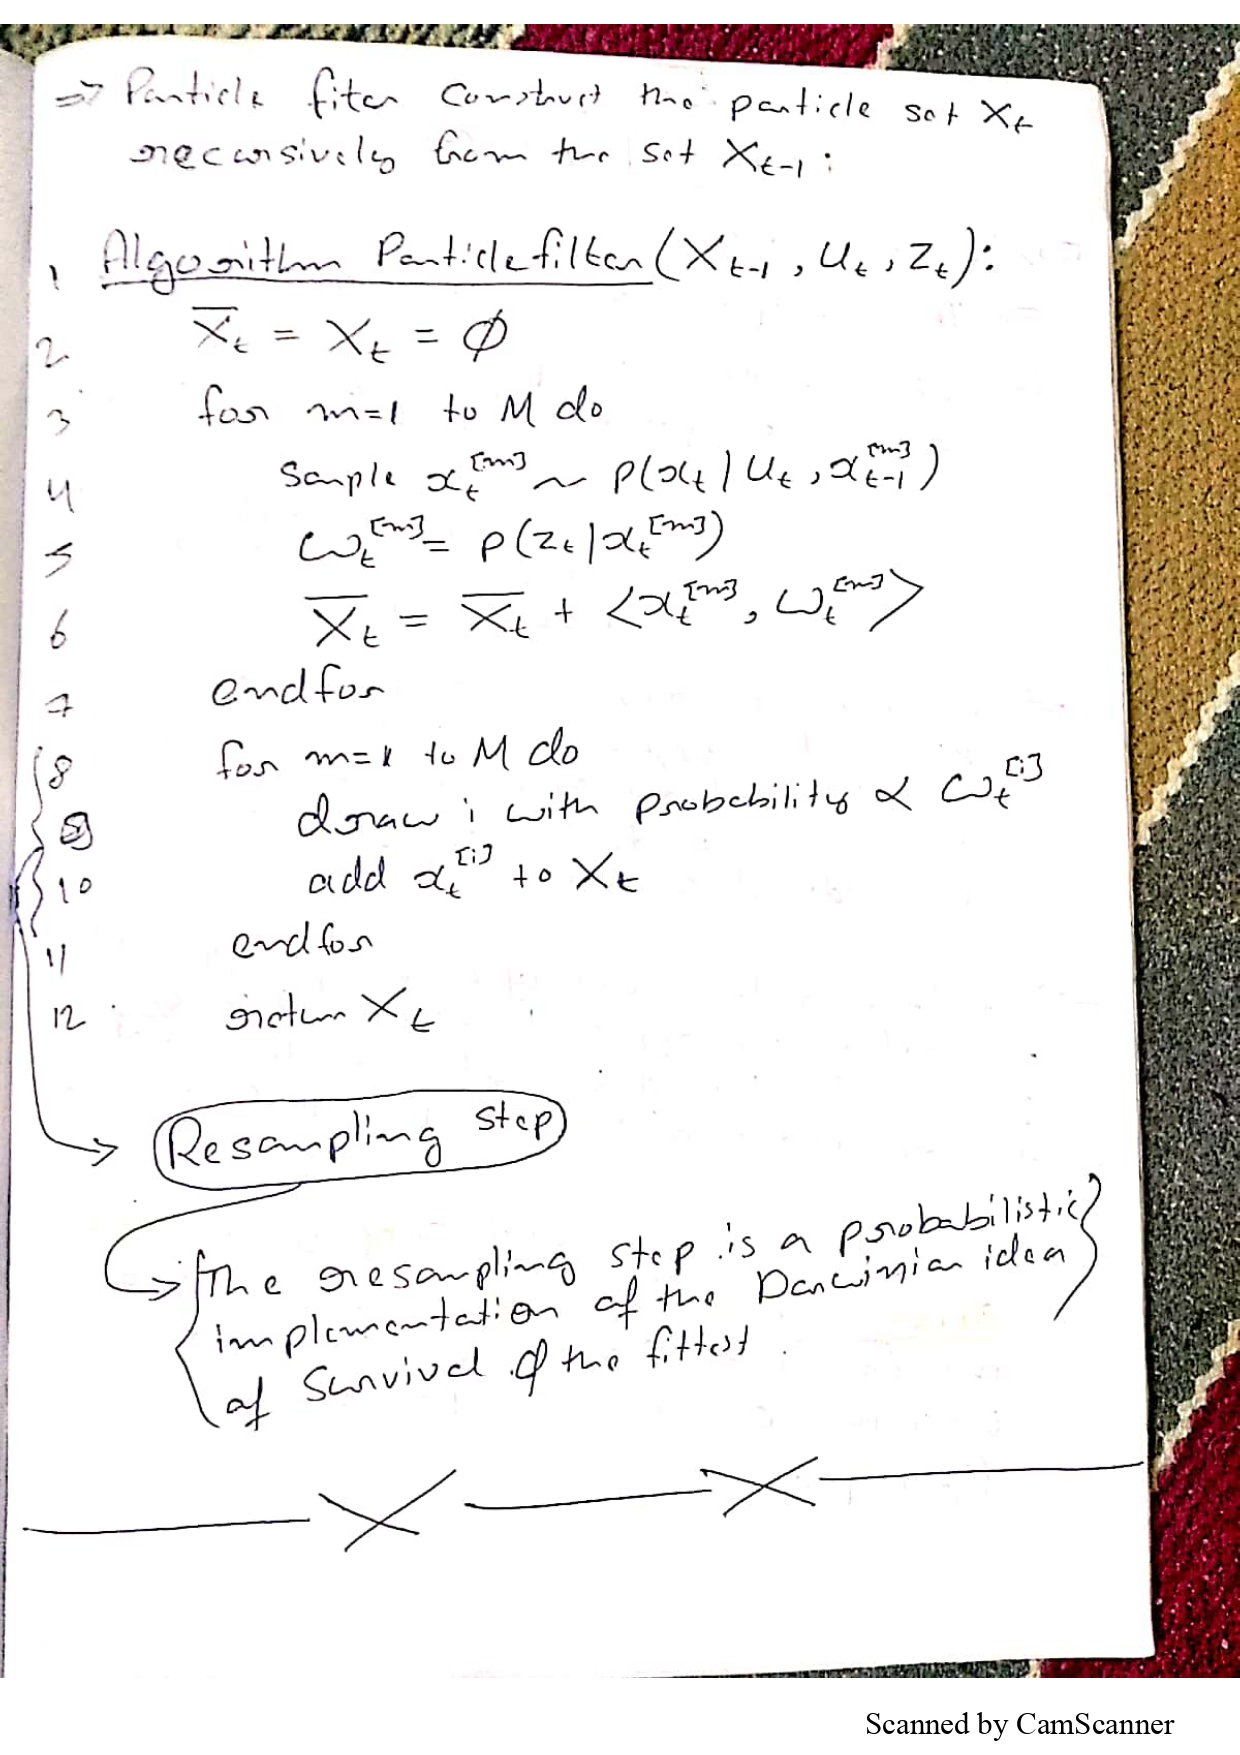 ⇒ Particle fiter construct the particle set X_t
recursively from the set X_{t-1}:
1 Algorithm Particlefilter(X_{t-1}, u_t, z_t):
2 X̄_t = X_t = ∅
3 for m=1 to M do
4 Sample x_t^{[m]} ~ p(x_t | u_t, x_{t-1}^{[m]})
5 ω_t^{[m]} = p(z_t | x_t^{[m]})
6 X̄_t = X̄_t + ⟨x_t^{[m]}, ω_t^{[m]}⟩
7 endfor
8 for m=1 to M do
9 draw i with probability ∝ ω_t^{[i]}
10 add x_t^{[i]} to X_t
11 endfor
12 return X_t
Resampling step
The resampling step is a probabilistic
implementation of the Darwinian idea
of Survival of the fittest.
Scanned by CamScanner